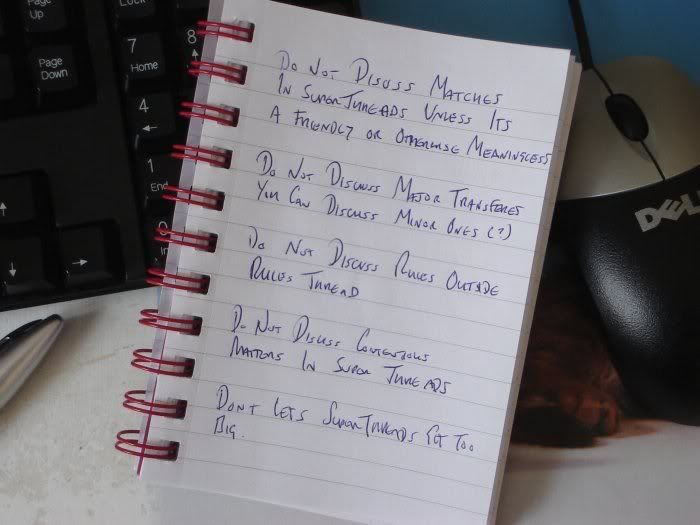 Page
Up
Lock
Page
Down
7
Home
8
4
1
End
0
In
Do Not Discuss Matches
In SuperThreads Unless Its
A Friendly or Otherwise Meaningless
Do Not Discuss Major Transferes
You Can Discuss Minor Ones (?)
Do Not Discuss Rules Outside
Rules Thread
Do Not Discuss Contentious
Matters In Super Threads
Dont Lets SuperThreads Get Too
Big.
DELL